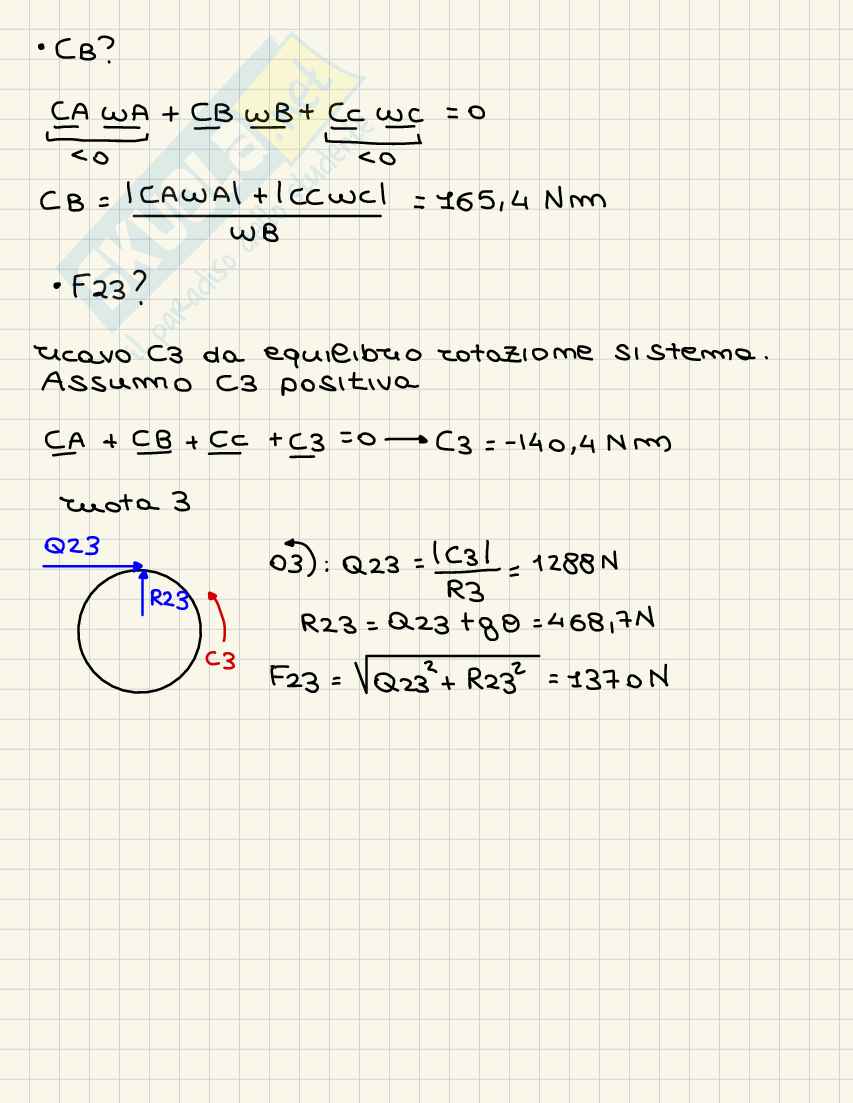 • CB?
CA ωA + CB ωB + Cc ωc = 0
<0 <0
CB = |CAωA| + |CCωC| / ωB = 165,4 Nm
• F23?
ricavo C3 da equilibrio rotazione sistema.
Assumo C3 positiva
CA + CB + Cc + C3 = 0 → C3 = -140,4 Nm
ruota 3
Q23
R23
C3
O3): Q23 = |C3| / R3 = 1288 N
R23 = Q23 + gθ = 468,7 N
F23 = √Q23² + R23² = 1370 N
SKUOLA.net
il paradiso dello studente